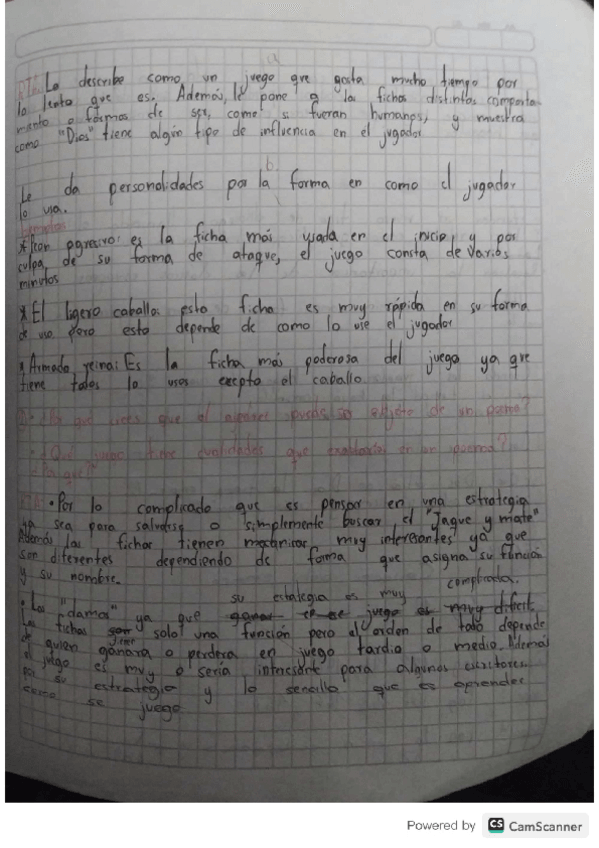 a
RTA: Lo describe como un juego que gasta mucho tiempo por
lo lento que es. Además, le pone a las fichas distintos comporta-
miento o formas de ser, como si fueran humanos, y muestra
como "Dios" tiene algún tipo de influencia en el jugador
b
Le da personalidades por la forma en como el jugador
lo usa.
Ejemplos
*Peon agresivo: es la ficha más usada en el inicio, y por
culpa de su forma de ataque, el juego consta de varios
minutos
*El ligero caballo: esta ficha es muy rápida en su forma
de uso pero esto depende de como lo use el jugador
*Armada reina: Es la ficha más poderosa del juego ya que
tiene todos lo usos excepto el caballo
¿Por qué crees que el ajedrez puede ser objeto de un poema?
¿Qué juego tiene cualidades que exaltarías en un poema?
¿Por qué?
RTA: •Por lo complicado que es pensar en una estrategia
ya sea para salvarse o simplemente buscar el "Jaque y mate"
Además las fichas tienen mecánicas muy interesantes ya que
son diferentes dependiendo de forma que asigna su función
y su nombre.
su estategia es muy complicada.
•Las "damas" ya que ganar en ese juego es muy difícil.
Las fichas son tiene solo una función pero el orden de todo depende
de quien ganara o perdera en juego tardio o medio. Además
el juego es muy o sería interesante para algunos escritores
por su estrategia y lo sencilla que es aprender
como se juego
Powered by CS CamScanner